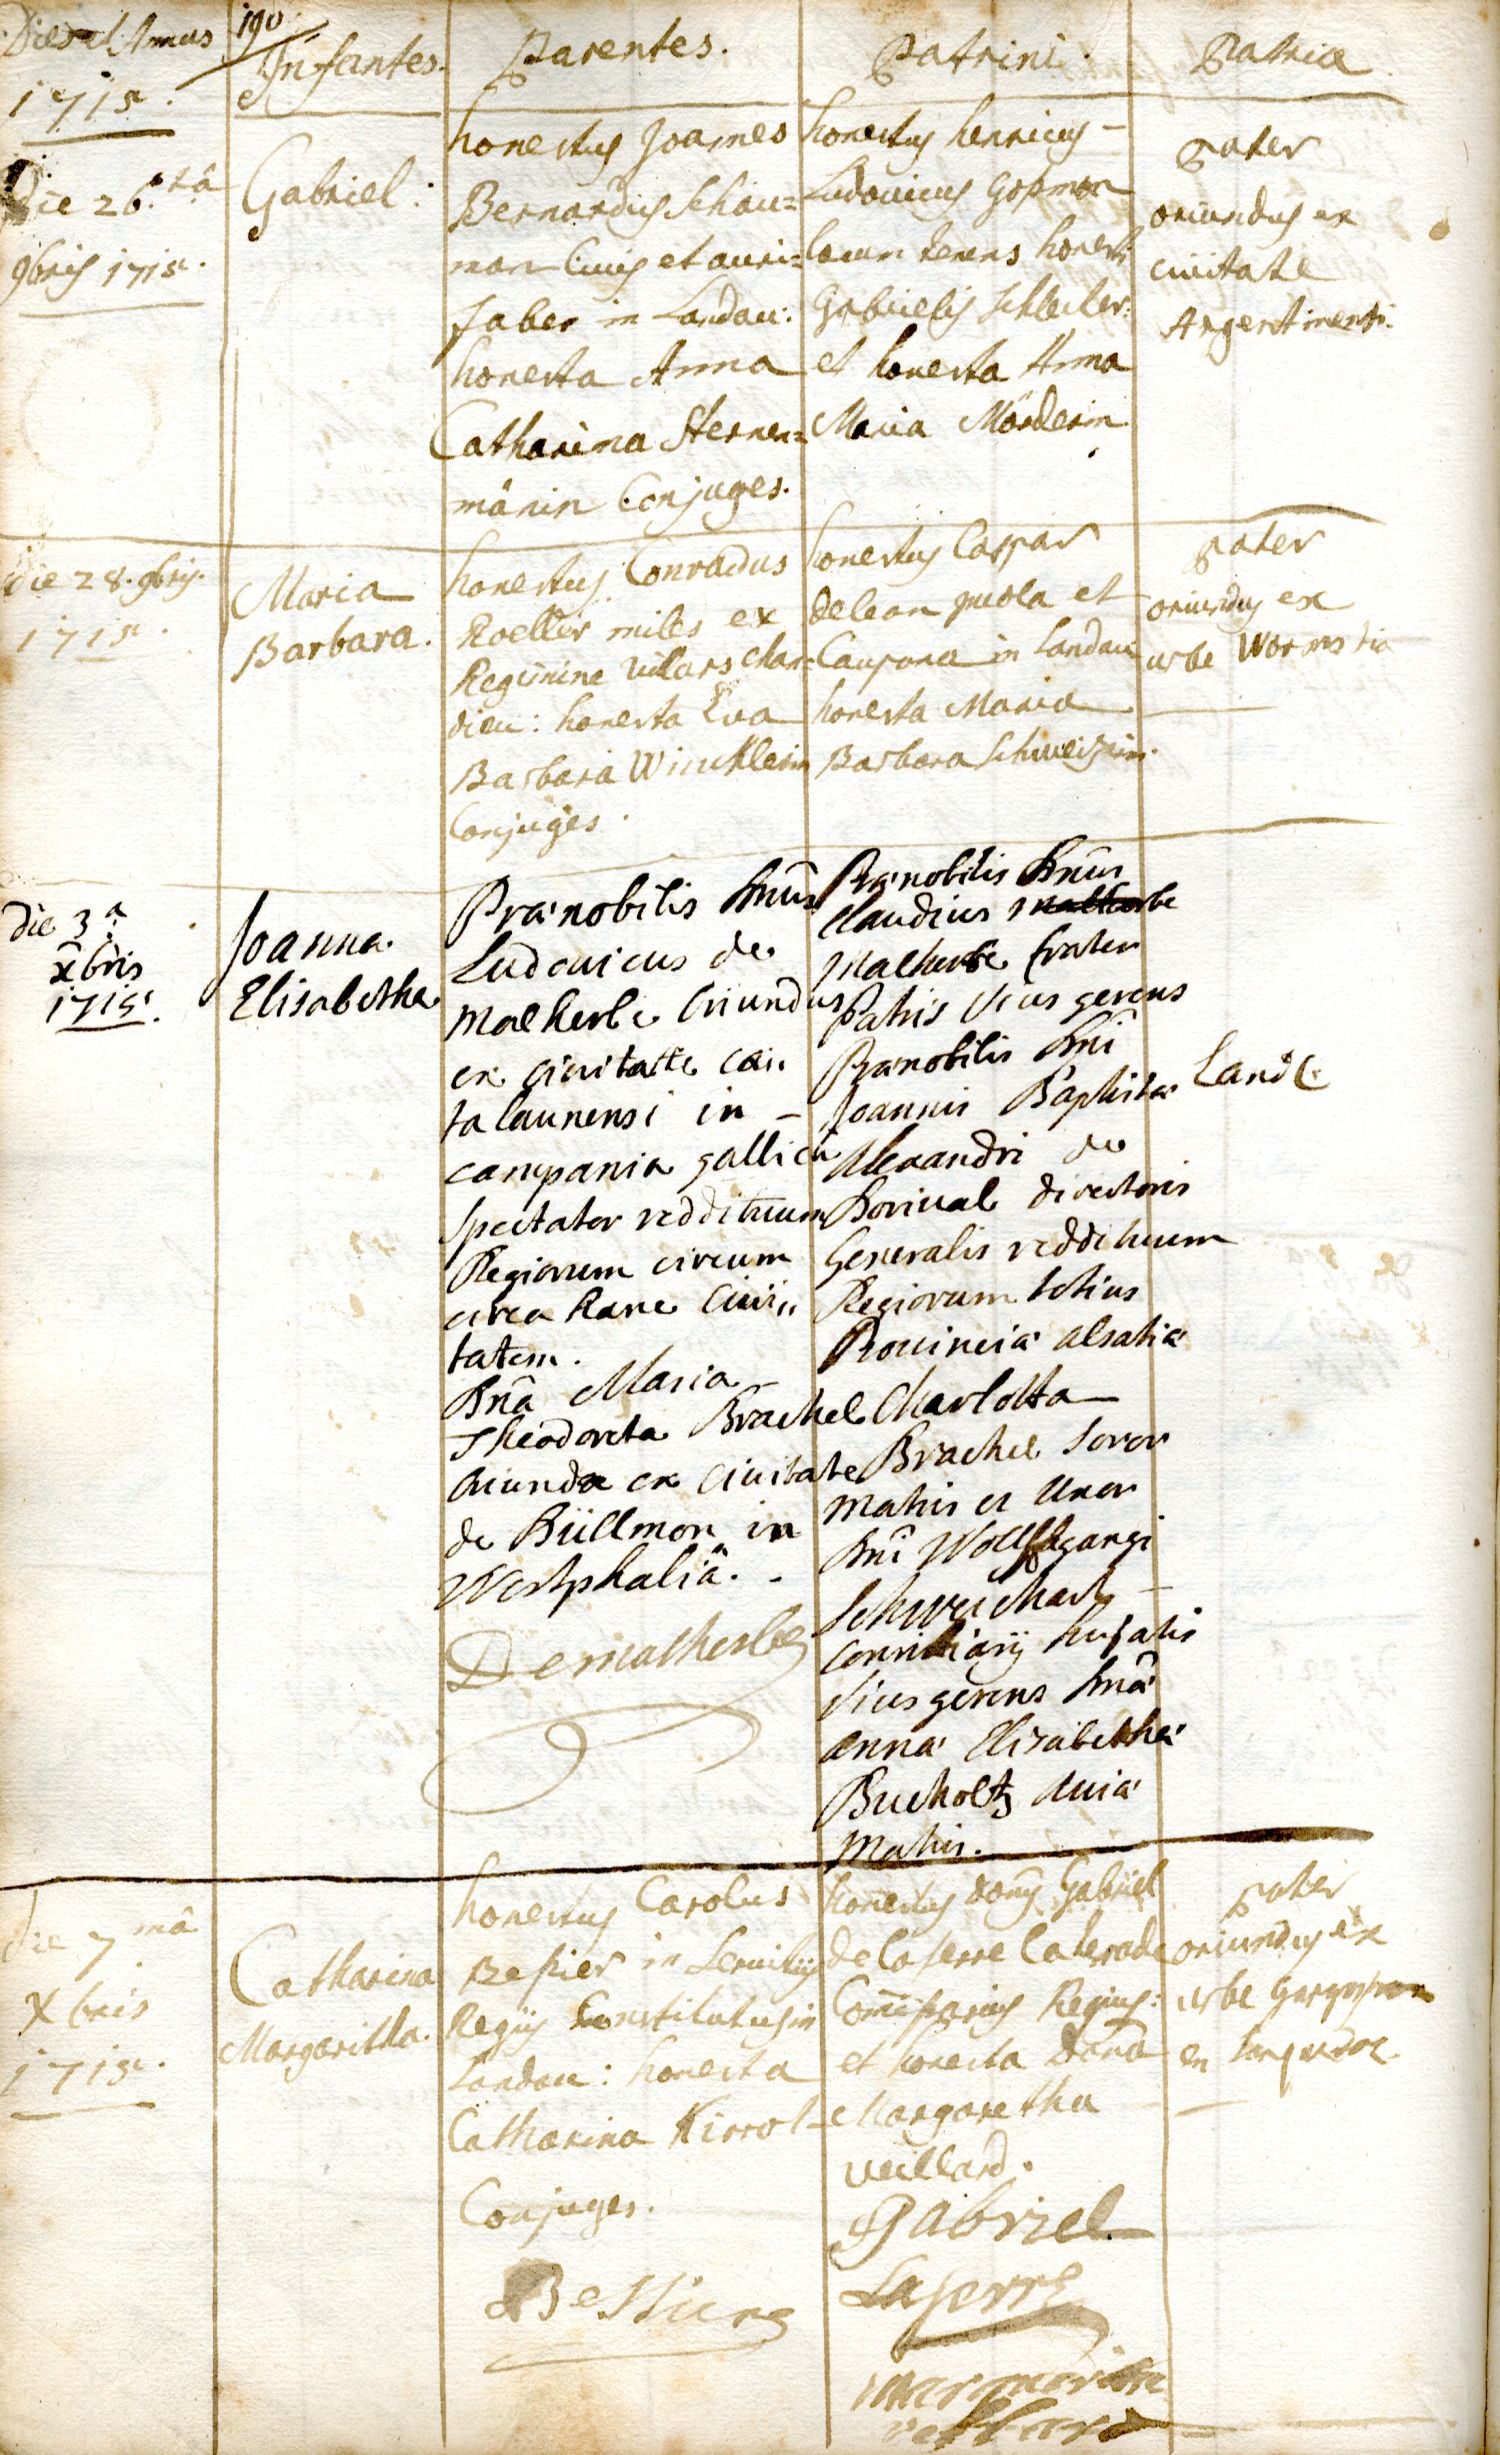 Dies et Annus
1715.
190
Infantes.
Parentes.
Patrini.
Patria
Die 26.tâ
9bris 1715.
Gabriel:
honestus Joannes
Bernardus Schau=
man Civis et auri=
faber in Landau:
honesta Anna
Catharina Sternen=
mânin Conjuges.
honestus henricus –
Ludovicus
locum tenens honesti
Gabrielis
et honesta Anna
Maria Mörderin
pater
oriundus ex
civitate
Argentinensi.
die 28. 9bris.
1715.
Maria
Barbara.
honestus Conradus
Roeller miles ex
Regimine villars char=
dieu: honesta Eva
Barbara Wincklerin
Conjuges.
honestus Caspar
delean et
Caupona in Landau
honesta Maria
Barbara Schweizerin.
pater
oriundus ex
urbe Worms
die 3.a
xbris
1715.
Joanna
Elisabetha
Prænobilis Dnus
Ludovicus de
Malherbe Oriundus
ex civitate ca„
talaunensi in –
campania gallica
spectator reddituum
Regiorum circum
circa hanc Civi„
tatem.
Dna Maria –
Theodoreta Brachel
Oriunda ex Civitate
de Büllmon in
Westphaliâ. -
Demalherbe
Prænobilis Dnus
Claudius Malherbe
Malherbe frater
Patris Vices gerens
Prænobilis Dni
Joannis Baptistæ
Alexandri de
Dorival directoris
Generalis reddituum
Regiorum totius
Provinciæ alsatiæ
Charlotta –
Brachel soror
Matris et Uxor
Dni Wolffgangi
Schweichart –
Consiliarij hujatis
Vices gerens Dnæ
annæ Elisabethæ
Bucholtz aviæ
Matris.
Land
die 7mâ
Xbris
1715.
Catharina
Margaritha.
honestus Carolus
Besier in servitijs
Regijs Constitutus in
Landau: honesta
Catharina Kirrol
Conjuges.
Bessiere
honestus Gabriel
de laserre
Comissarius Regius:
et honesta Dona
Margaretha
veillard.
Gabriel
Laserre
pater
oriundus ex
urbe
en Languedoc.